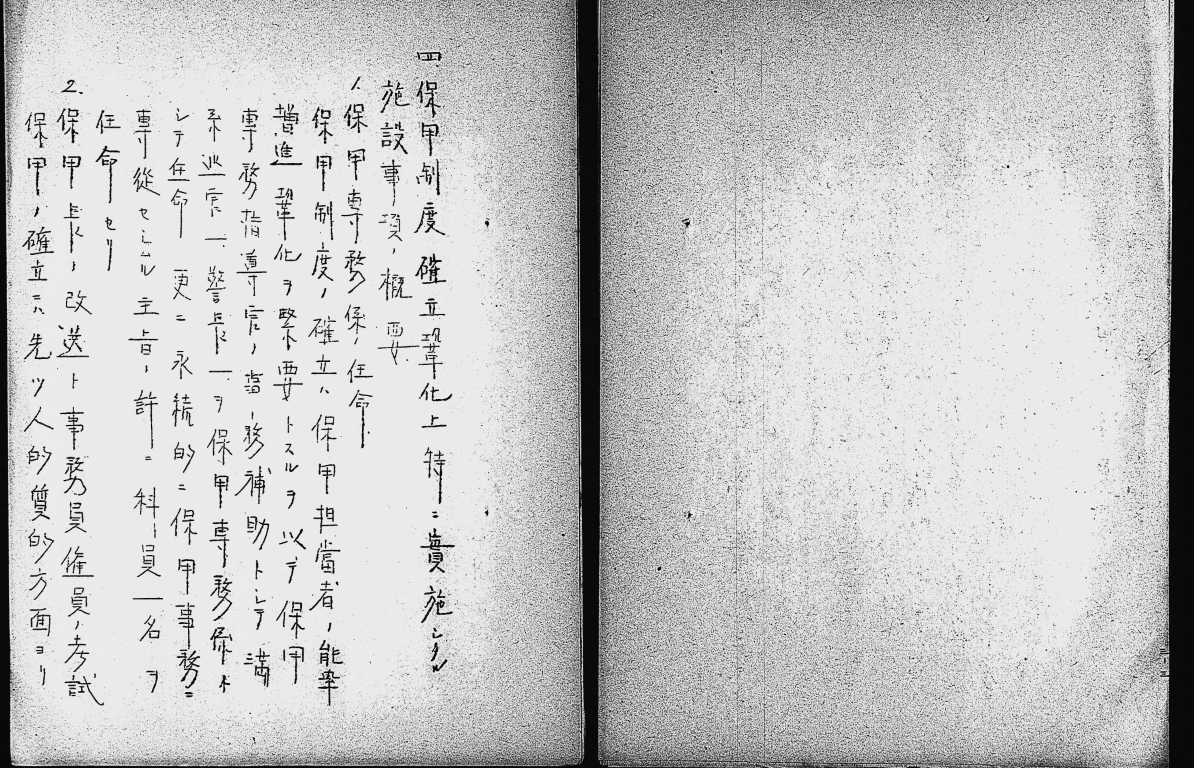 四、保甲制度確立鞏化上特ニ實施シタル
施設事項ノ概要
1.保甲専務係ノ任命
保甲制度ノ確立ハ保甲担當者ノ能率
増進鞏化ヲ緊要トスルヲ以テ保甲
専務指導官ノ當務補助トシテ満
系巡官一、警長一ヲ保甲専務係ト
シテ任命更ニ永続的ニ保甲事務ニ
専從セシムル主旨ノ許ニ科員一名ヲ
任命セリ
2.保甲長ノ改選ト事務員僱員ノ考試
保甲ノ確立ハ先ツ人的質的方面ヨリ